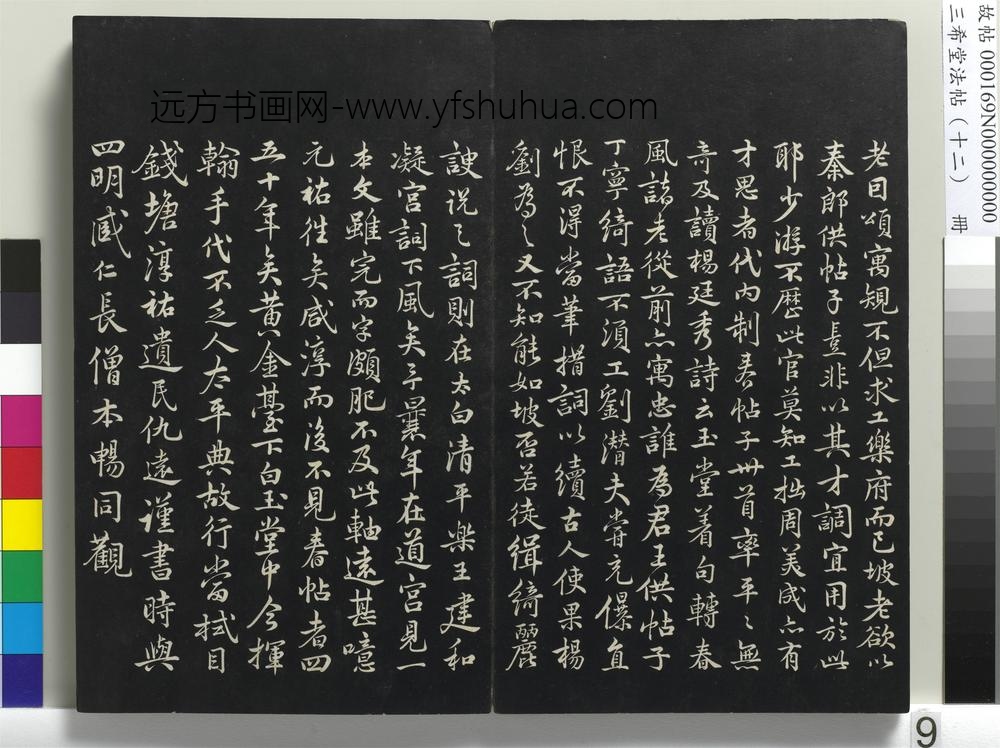 老自頌寓規不但求工樂府而已坡老欲以
秦郎供帖子豈非以其才調宜用於此
耶少游不歷此官莫知工拙周美成亦有
才思者代內制春帖子卅首率平々無
奇及讀楊廷秀詩云玉堂着句轉春
風諸老從前亦寓忠誰為君王供帖子
丁寧綺語不須工劉潛夫嘗充儤直
恨不得當筆措詞以續古人使果楊
劉為之又不知能如坡否若徒緝綺麗
諛說之詞則在太白清平樂王建和
凝宮詞下風矣予曩年在道宮見一
本文雖完而字頗肥不及此軸遠甚噫
元祐往矣咸淳而後不見春帖者四
五十年矣黃金臺下白玉堂中今揮
翰手代不乏人太平典故行當拭目
錢塘淳祐遺民仇遠謹書時與
四明戚仁長僧本暢同觀
远方书画网-www.yfshuhua.com
故帖 000169N000000000
三希堂法帖（十二） 冊
9